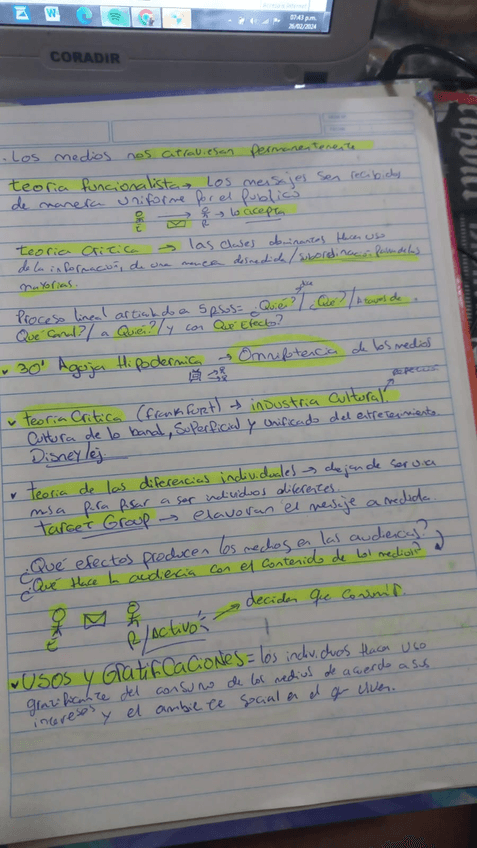 07:43 p.m.
26/02/2024
CORADIR
. Los medios nos atraviesan permanentemente
teoria funcionalista → Los mensajes son recibidos
de manera uniforme por el publico
E → R → lo acepta
teoria Critica → las clases dominantes Hacen uso
de la información, de una manera desmedida/subordinación
mayorias.
Proceso lineal 5 pasos = ¿Quién?/ ¿Qué?/ Através de
Qué Canal?/ a Quién?/ y con Qué Efecto?
• 30' Aguja Hipodermica → Omnipotencia de los medios
teoria Critica (Frankfurt) → industria Cultural
Cultura de lo banal, Superficial y unificado del entretenimiento
Disney/ej
teoria de las diferencias individuales → dejan de ser una
masa para pasar a ser individuos diferentes.
target Group → elavoran el mensaje a medida.
¿Qué efectos producen los medios en las audiencias?
¿Qué Hace la audiencia con el contenido de los medios?
E R/Activo → deciden que consumir.
USOS y GRATIFICACIONES = los individuos Hacen uso
gratificante del consumo de los medios de acuerdo a sus
intereses y el ambiente social en el qr viven.